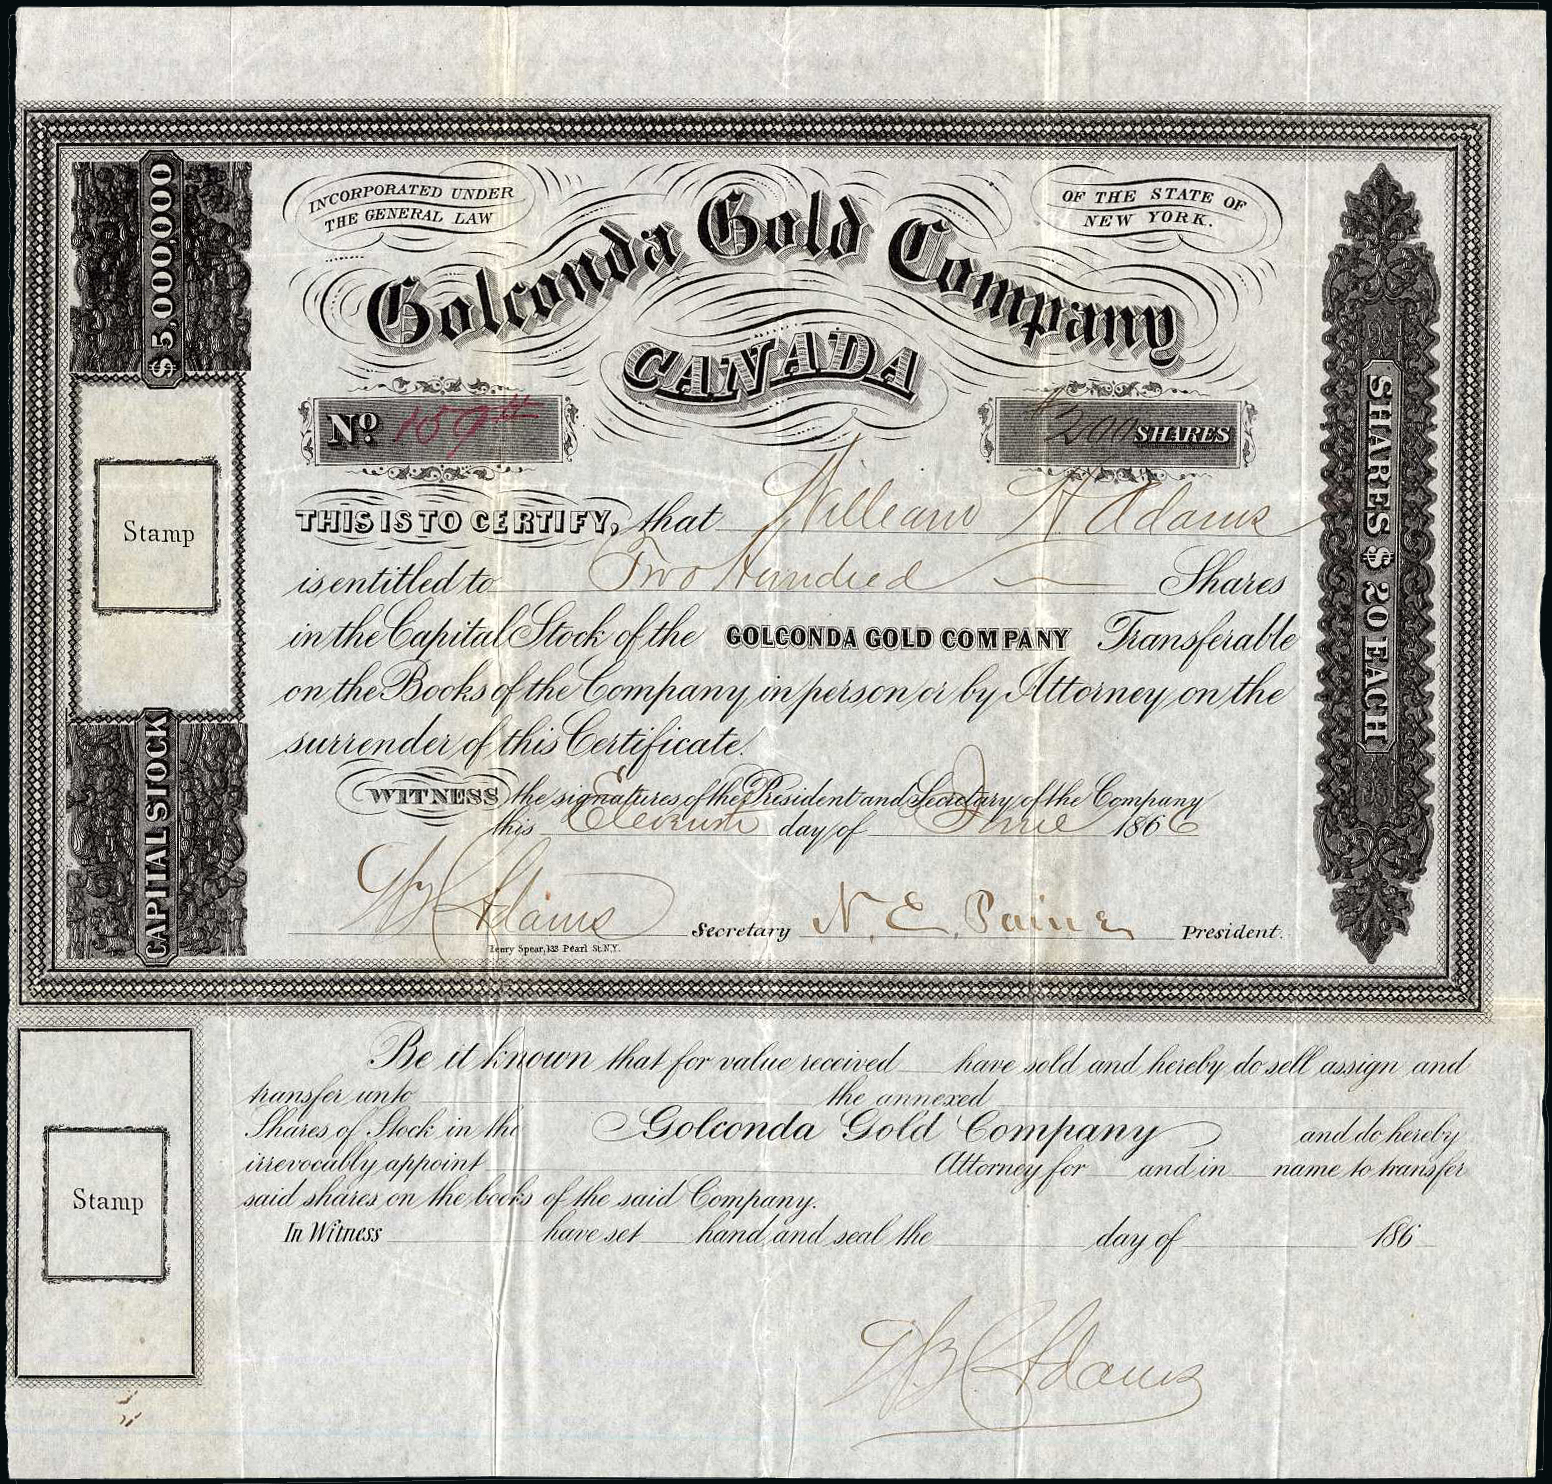 INCORPORATED UNDER
THE GENERAL LAW
OF THE STATE OF
NEW YORK.
$5,000,000
CAPITAL STOCK
Stamp
Golconda Gold Company
CANADA
No 159
200 SHARES
SHARES $20 EACH
THIS IS TO CERTIFY, that William H Adams
is entitled to Two Hundred Shares
in the Capital Stock of the GOLCONDA GOLD COMPANY Transferable
on the Books of the Company in person or by Attorney on the
surrender of this Certificate.
WITNESS the signatures of the President and Secretary of the Company
this Eleventh day of June 1866
Adams Secretary N. E. Paine President.
Henry Spear, 133 Pearl St. N.Y.
Be it known that for value received have sold and hereby do sell assign and
transfer unto the annexed
Shares of Stock in the Golconda Gold Company and do hereby
irrevocably appoint Attorney for and in name to transfer
said shares on the books of the said Company.
In Witness have set hand and seal the day of 186
Stamp
Adams